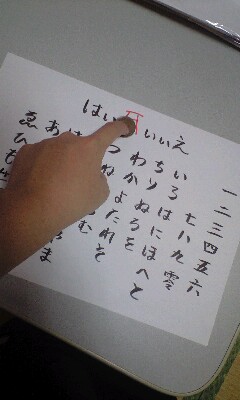 はい いいえ
一二三四五六
七八九零
いろはにほへと
ちりぬるを
わかよたれそ
つね む
ま
あ
ゑひも